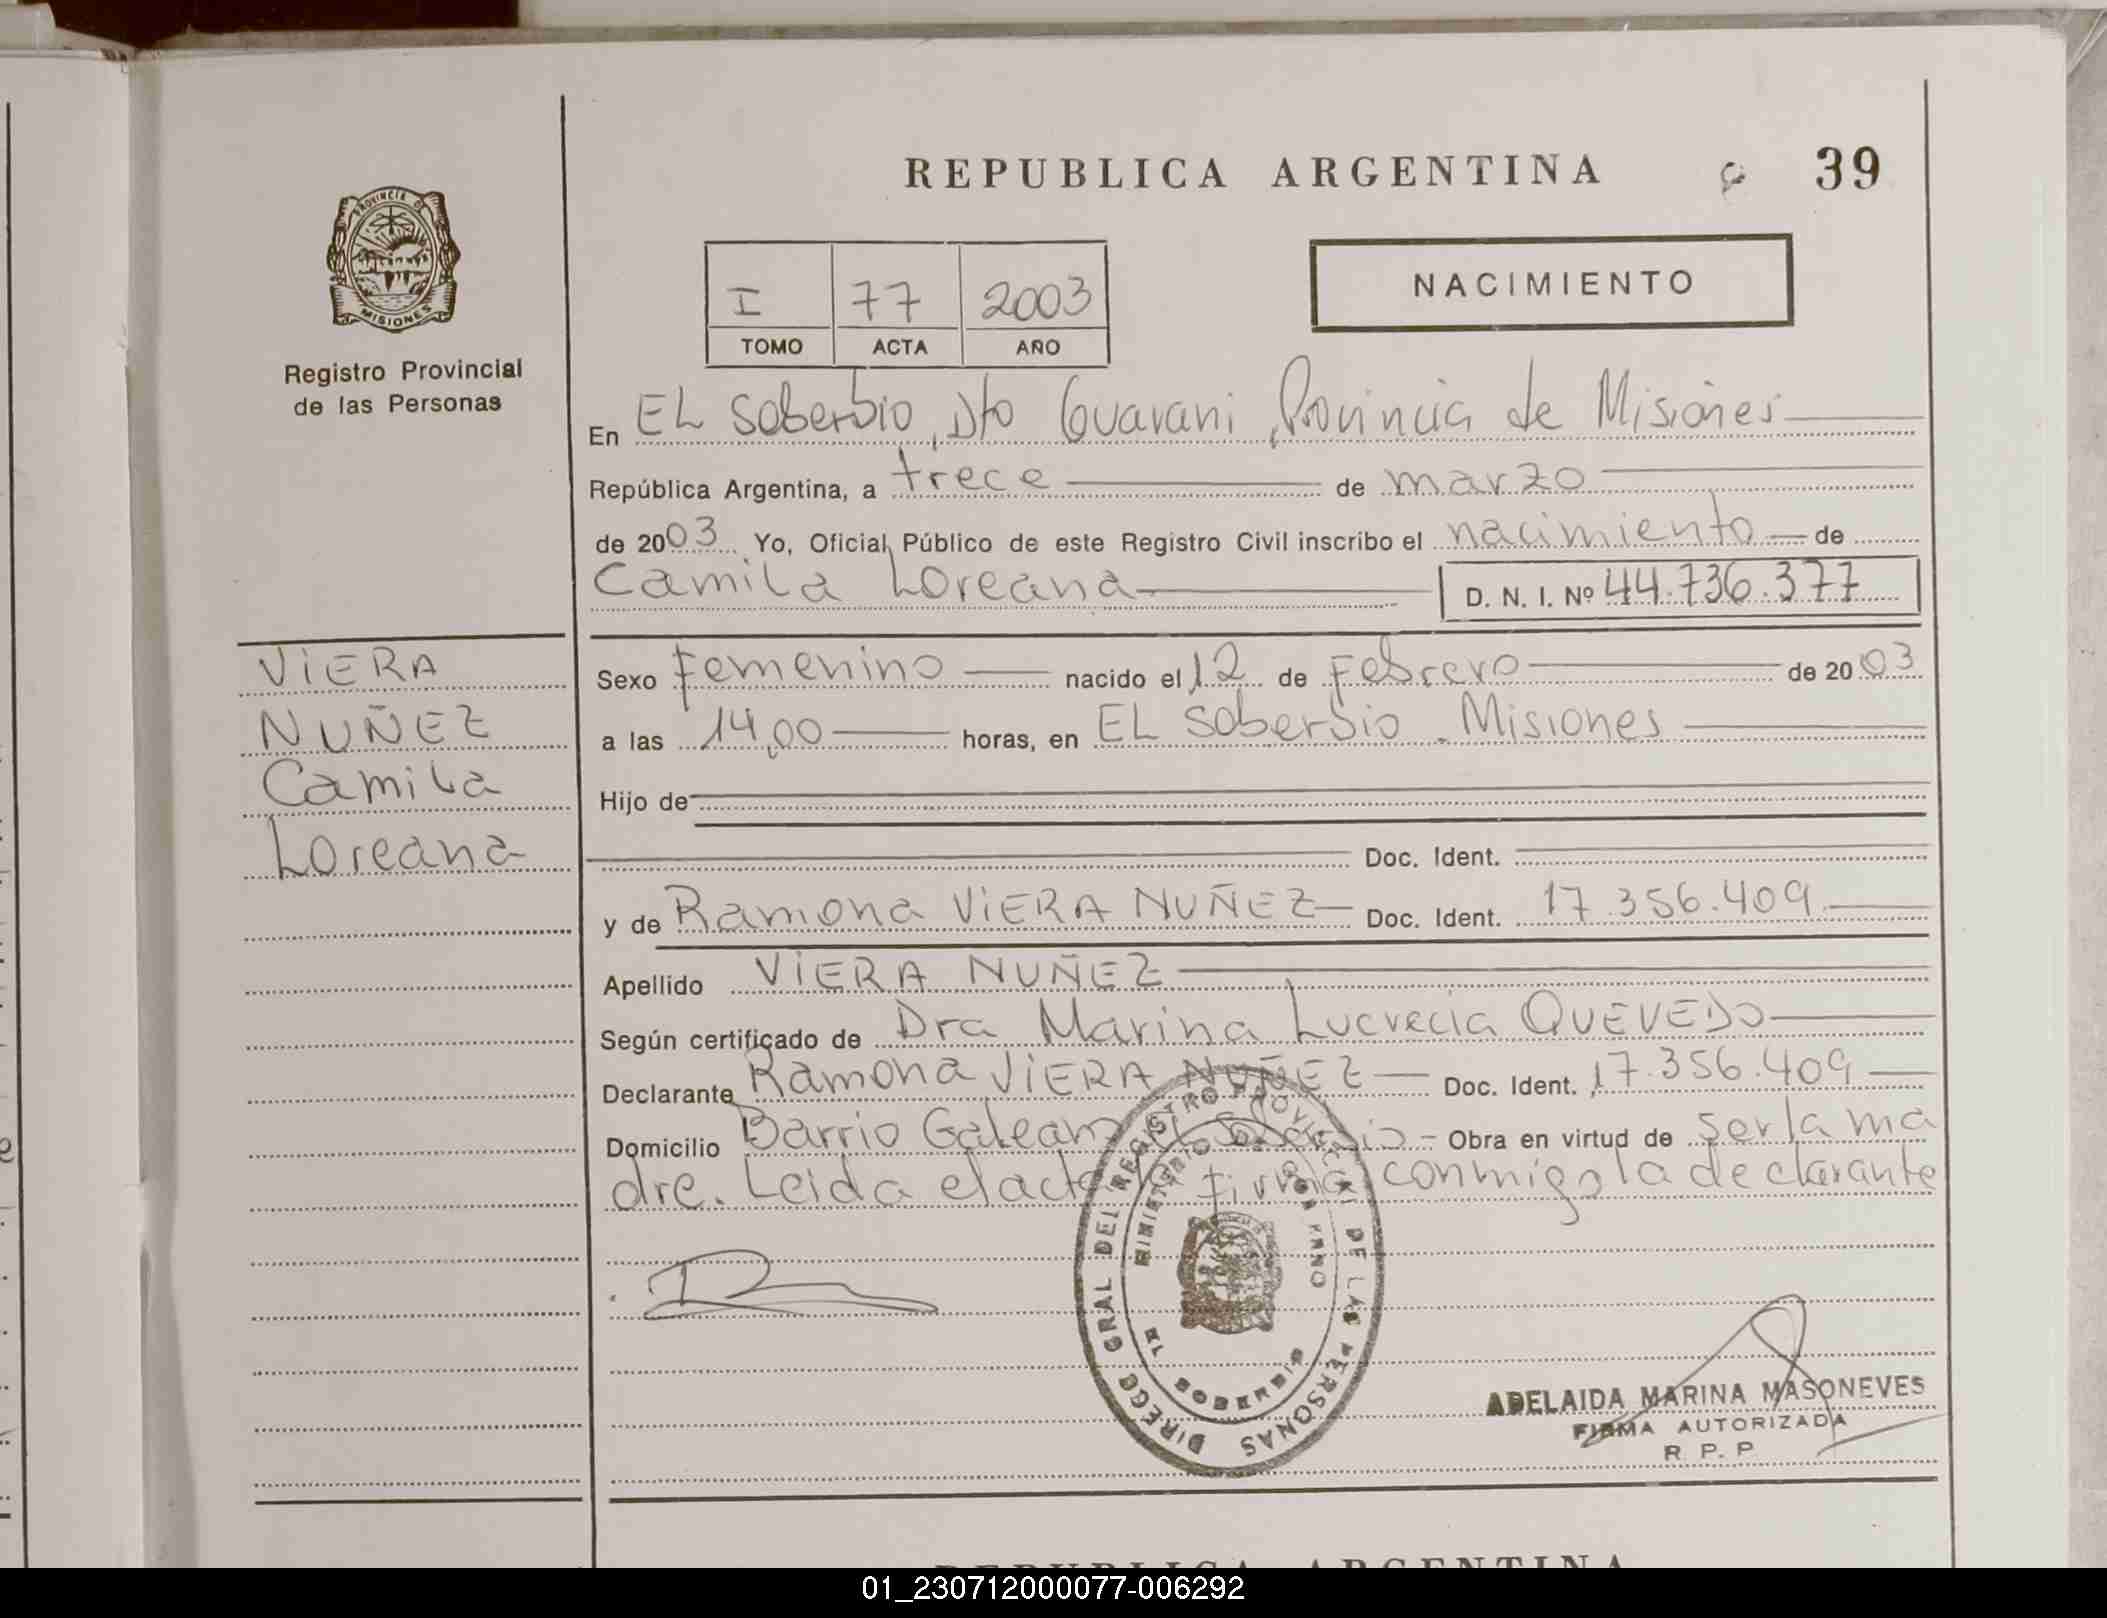 REPUBLICA ARGENTINA 39
PROVINCIA DE MISIONES
Registro Provincial
de las Personas
I 77 2003
TOMO ACTA AÑO
NACIMIENTO
En EL Soberbio, Dto Guarani, Provincia de Misiones
República Argentina, a trece de marzo
de 2003 Yo, Oficial Público de este Registro Civil inscribo el nacimiento de
Camila Loreana D. N. I. Nº 44.736.377
VIERA
NUÑEZ
Camila
Loreana
Sexo Femenino nacido el 12 de Febrero de 2003
a las 14,00 horas, en EL Soberbio. Misiones
Hijo de
Doc. Ident.
y de Ramona VIERA NUÑEZ Doc. Ident. 17.356.409
Apellido VIERA NUÑEZ
Según certificado de Dra Marina Lucrecia QUEVEDO
Declarante Ramona VIERA NUÑEZ Doc. Ident. 17.356.409
Domicilio Barrio Galeano El Soberbio - Obra en virtud de ser la ma
dre. Leida el acta la firma conmigo la declarante
DIRECC GRAL DEL REGISTRO PROVINCIAL DE LAS PERSONAS
MINISTERIO GOBIERNO
EL SOBERBIO
ADELAIDA MARINA MASONEVES
FIRMA AUTORIZADA
R. P. P
REPUBLICA ARGENTINA
01_230712000077-006292